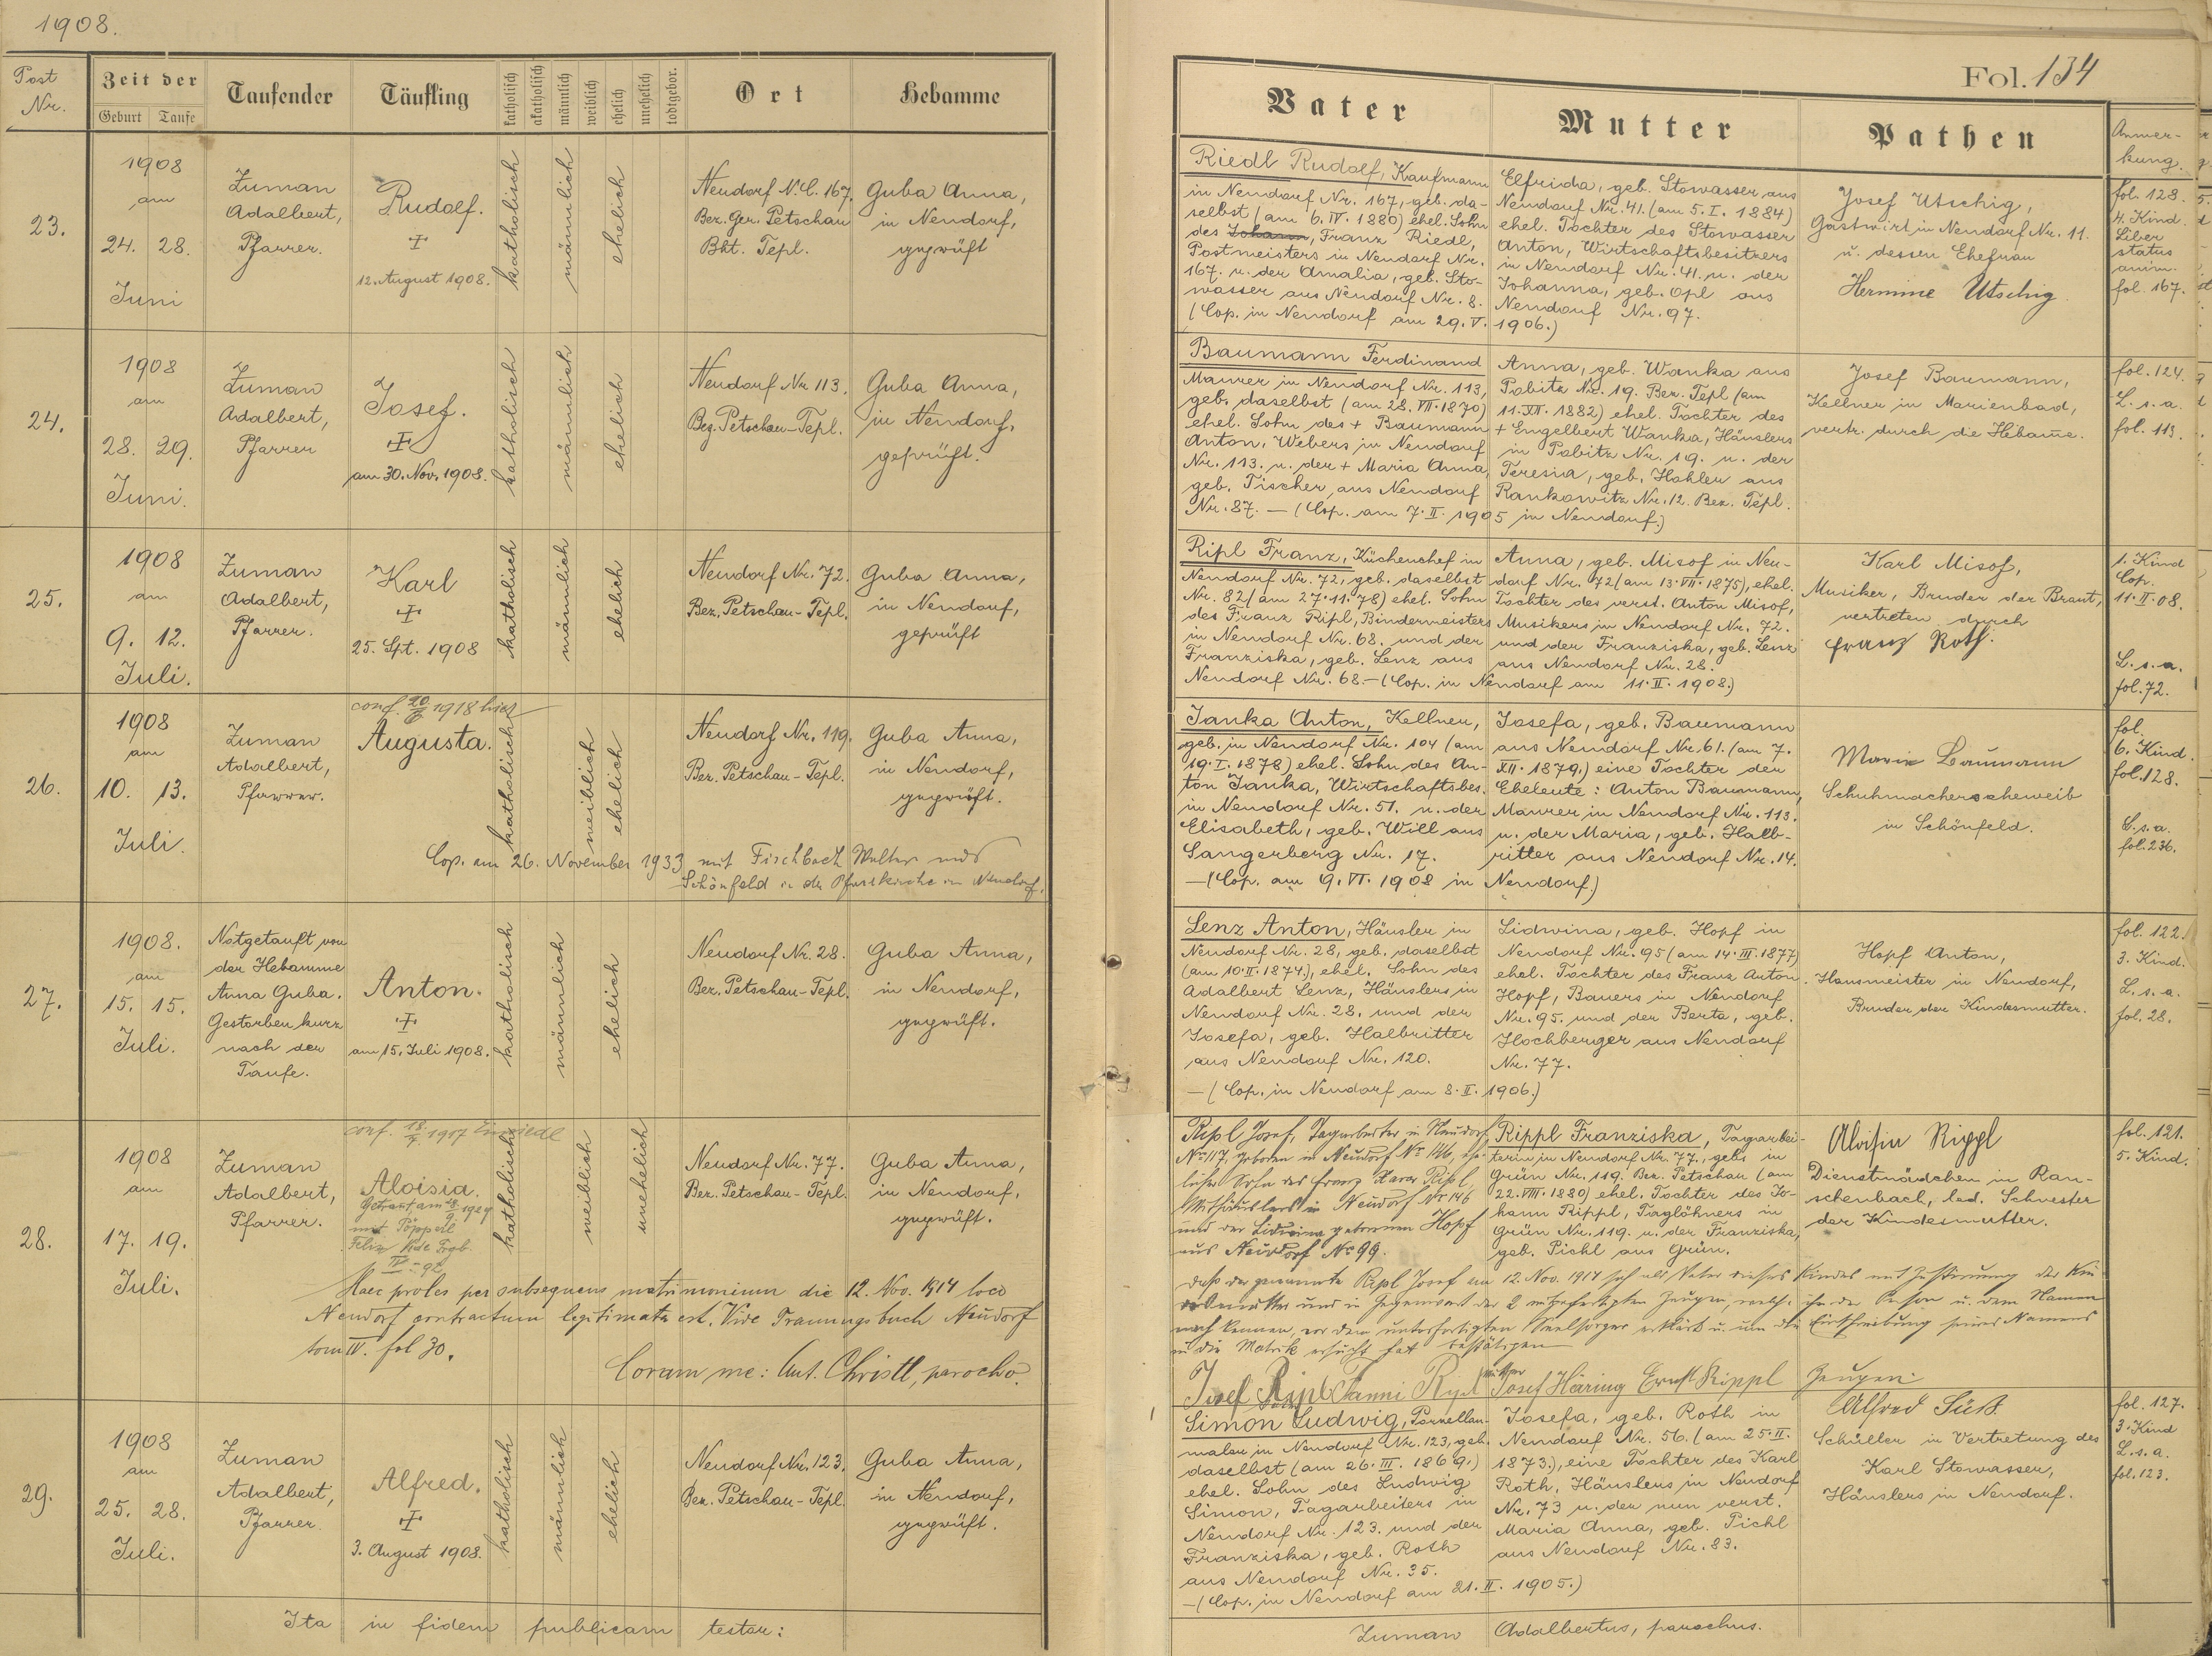 1908.
Post
Nr.
Zeit der
Geburt
Taufe
Taufender
Täufling
katholisch
akatholisch
männlich
weiblich
ehelich
unehelich
todtgebor.
Ort
Hebamme
23.
1908
am
24. 28.
Juni
Zuman
Adalbert,
Pfarrer.
Rudolf.
12. August 1908.
katholisch
männlich
ehelich
Neudorf N.C. 167.
Bez. Ger. Petschau
Bht. Tepl.
Guba Anna,
in Neudorf,
geprüft
24.
1908
am
28. 29.
Juni.
Zuman
Adalbert,
Pfarrer
Josef.
am 30. Nov. 1908.
katholisch
männlich
ehelich
Neudorf Nr 113.
Bez. Petschau-Tepl.
Guba Anna,
in Neudorf,
geprüft.
25.
1908
am
9. 12.
Juli.
Zuman
Adalbert,
Pfarrer.
Karl
25. Spt. 1908
katholisch
männlich
ehelich
Neudorf Nr. 72.
Bez. Petschau-Tepl.
Guba Anna,
in Neudorf,
geprüft
26.
1908
am
10. 13.
Juli.
Zuman
Adalbert,
Pfarrer.
conf. 1918 hier
Augusta.
katholisch
weiblich
ehelich
Neudorf Nr. 119.
Bez. Petschau-Tepl.
Guba Anna,
in Neudorf,
geprüft.
Cop. am 26. November 1933 mit Fischbach Walter aus
Schönfeld in der Pfarrkirche in Neudorf.
27.
1908.
am
15. 15.
Juli.
Notgetauft von
der Hebamme
Anna Guba.
Gestorben kurz
nach der
Taufe.
Anton.
am 15. Juli 1908.
katholisch
männlich
ehelich
Neudorf Nr. 28.
Bez. Petschau-Tepl.
Guba Anna,
in Neudorf,
geprüft.
28.
1908
am
17. 19.
Juli.
Zuman
Adalbert,
Pfarrer.
conf. Einsiedl
Aloisia.
Getraut am
mit Pöpperl
Felix Vide Trgb.
IV - 92
katholisch
weiblich
unehelich
Neudorf Nr. 77.
Bez. Petschau-Tepl.
Guba Anna,
in Neudorf,
geprüft.
Haec proles per subsequens matrimonium die 12. Nov. 1914 loco
Neudorf contractum legitimata est. Vide Trauungsbuch Neudorf
tom IV. fol 30.
Coram me: Ant. Christl, parocho.
29.
1908
am
25. 28.
Juli.
Zuman
Adalbert,
Pfarrer.
Alfred.
3. August 1908.
katholisch
männlich
ehelich
Neudorf Nr. 123.
Bez. Petschau-Tepl.
Guba Anna,
in Neudorf,
geprüft.
Ita in fidem publicam testor:
Fol. 134
Vater
Mutter
Pathen
Anmer-
kung.
Riedl Rudolf, Kaufmann
in Neudorf Nr. 167, geb. da-
selbst (am 6. IV. 1880) ehel. Sohn
des Johann, Franz Riedl,
Postmeisters in Neudorf Nr.
167. u. der Amalia, geb. Sto-
wasser aus Neudorf Nr. 8.
(Cop. in Neudorf am 29. V. 1906.)
Elfrida, geb. Stowasser aus
Neudorf Nr. 41. (am 5. I. 1884)
ehel. Tochter des Stowasser
Anton, Wirtschaftsbesitzers
in Neudorf Nr. 41. u. der
Johanna, geb. Opl aus
Neudorf Nr. 97.
Josef Utschig,
Gastwirt in Neudorf Nr. 11.
u. dessen Ehefrau
Hermine Utschig
fol. 128.
4. Kind.
Liber
status
anim.
fol. 167.
Baumann Ferdinand
Maurer in Neudorf Nr. 113,
geb. daselbst (am 28. VII. 1870)
ehel. Sohn des + Baumann
Anton, Webers in Neudorf
Nr. 113. u. der + Maria Anna,
geb. Tischer, aus Neudorf
Nr. 87. — (Cop. am 7. II. 1905 in Neudorf.)
Anna, geb. Wanka aus
Pobitz Nr. 19. Bez. Tepl (am
11. XII. 1882) ehel. Tochter des
+ Engelbert Wanka, Häuslers
in Pobitz Nr. 19. u. der
Teresia, geb. Hahler aus
Rankowitz Nr. 12. Bez. Tepl.
Josef Baumann,
Kellner in Marienbad,
vertr. durch die Hebame.
fol. 124.
L. s. a.
fol. 113.
Ripl Franz, Küchenchef in
Neudorf Nr. 72, geb. daselbst
Nr. 82 (am 27. 11. 78) ehel. Sohn
des Franz Ripl, Bindermeisters
in Neudorf Nr. 68. und der
Franziska, geb. Lenz aus
Neudorf Nr. 68. — (Cop. in Neudorf am 11. II. 1908.)
Anna, geb. Misof in Neu-
dorf Nr. 72 (am 13. VII. 1875), ehel.
Tochter des verst. Anton Misof,
Musikers in Neudorf Nr. 72.
und der Franziska, geb. Lenz
aus Neudorf Nr. 28.
Karl Misof,
Musiker, Bruder der Braut,
vertreten durch
Franz Roth.
1. Kind
Cop.
11. II. 08.
L. s. a.
fol. 72.
Janka Anton, Kellner,
geb. in Neudorf Nr. 104 (am
19. I. 1878) ehel. Sohn des An-
ton Janka, Wirtschaftsbes.
in Neudorf Nr. 51. u. der
Elisabeth, geb. Will aus
Sangerberg Nr. 17.
— (Cop. am 9. VI. 1908 in Neudorf.)
Josefa, geb. Baumann
aus Neudorf Nr. 61. (am 7.
XII. 1879.) eine Tochter der
Eheleute: Anton Baumann,
Maurer in Neudorf Nr. 113.
u. der Maria, geb. Halb-
ritter aus Neudorf Nr. 14.
Marie Baumann
Schuhmacherseheweib
in Schönfeld.
fol.
6. Kind.
fol. 128.
L. s. a.
fol. 236.
Lenz Anton, Häusler in
Neudorf Nr. 28, geb. daselbst
(am 10. II. 1874.), ehel. Sohn des
Adalbert Lenz, Häuslers in
Neudorf Nr. 28. und der
Josefa, geb. Halbritter
aus Neudorf Nr. 120.
— (Cop. in Neudorf am 8. II. 1906.)
Lidwina, geb. Hopf in
Neudorf Nr. 95 (am 14. III. 1877)
ehel. Tochter des Franz Anton
Hopf, Bauers in Neudorf
Nr. 95. und der Berta, geb.
Hochberger aus Neudorf
Nr. 77.
Hopf Anton,
Hausmeister in Neudorf,
Bruder der Kindesmutter.
fol. 122.
3. Kind.
L. s. a.
fol. 28.
Ripl Josef, Tagarbeiter in Neudorf
No 117, geboren in Neudorf No 146, ehe-
licher Sohn des Franz Xaver Ripl,
in Neudorf No 146
und der Lidwina geborenen Hopf
aus Neudorf No 99.
Rippl Franziska, Tagarbei-
terin in Neudorf Nr. 77., geb. in
Grün Nr. 119. Bez. Petschau (am
22. VIII. 1880) ehel. Tochter des Jo-
hann Rippl, Taglöhners in
Grün Nr. 119. u. der Franziska,
geb. Pichl aus Grün.
Aloisia Rippl
Dienstmädchen in Rau-
schenbach, led. Schwester
der Kindesmutter.
fol. 121.
5. Kind.
Daß der genannte Ripl Josef am 12. Nov. 1914 sich als Vater dieses Kindes mit Zustimmung der Kin-
desmutter und in Gegenwart der 2 mitgefertigten Zeugen, welche ihn der Person u. dem Namen
nach kennen, vor dem unterfertigten Seelsorger erklärt u. um die Einschreibung seines Namens
in die Matrik ersucht hat bestätigen
Josef Ripl Fanni Ripl Mutter Josef Häring Ernst Rippl Zeugen.
Simon Ludwig, Porzellan-
maler in Neudorf Nr. 123, geb.
daselbst (am 26. III. 1869.)
ehel. Sohn des Ludwig
Simon, Tagarbeiters in
Neudorf Nr. 123. und der
Franziska, geb. Roth
aus Neudorf Nr. 35.
— (Cop. in Neudorf am 21. II. 1905.)
Josefa, geb. Roth in
Neudorf Nr. 56. (am 25. II.
1873.), eine Tochter des Karl
Roth, Häuslers in Neudorf
Nr. 73 u. der nun verst.
Maria Anna, geb. Pichl
aus Neudorf Nr. 83.
Alfred Süß
Schüller in Vertretung des
Karl Stowasser,
Häuslers in Neudorf.
fol. 127.
3. Kind
L. s. a.
fol. 123.
Zuman Adalbertus, parochus.